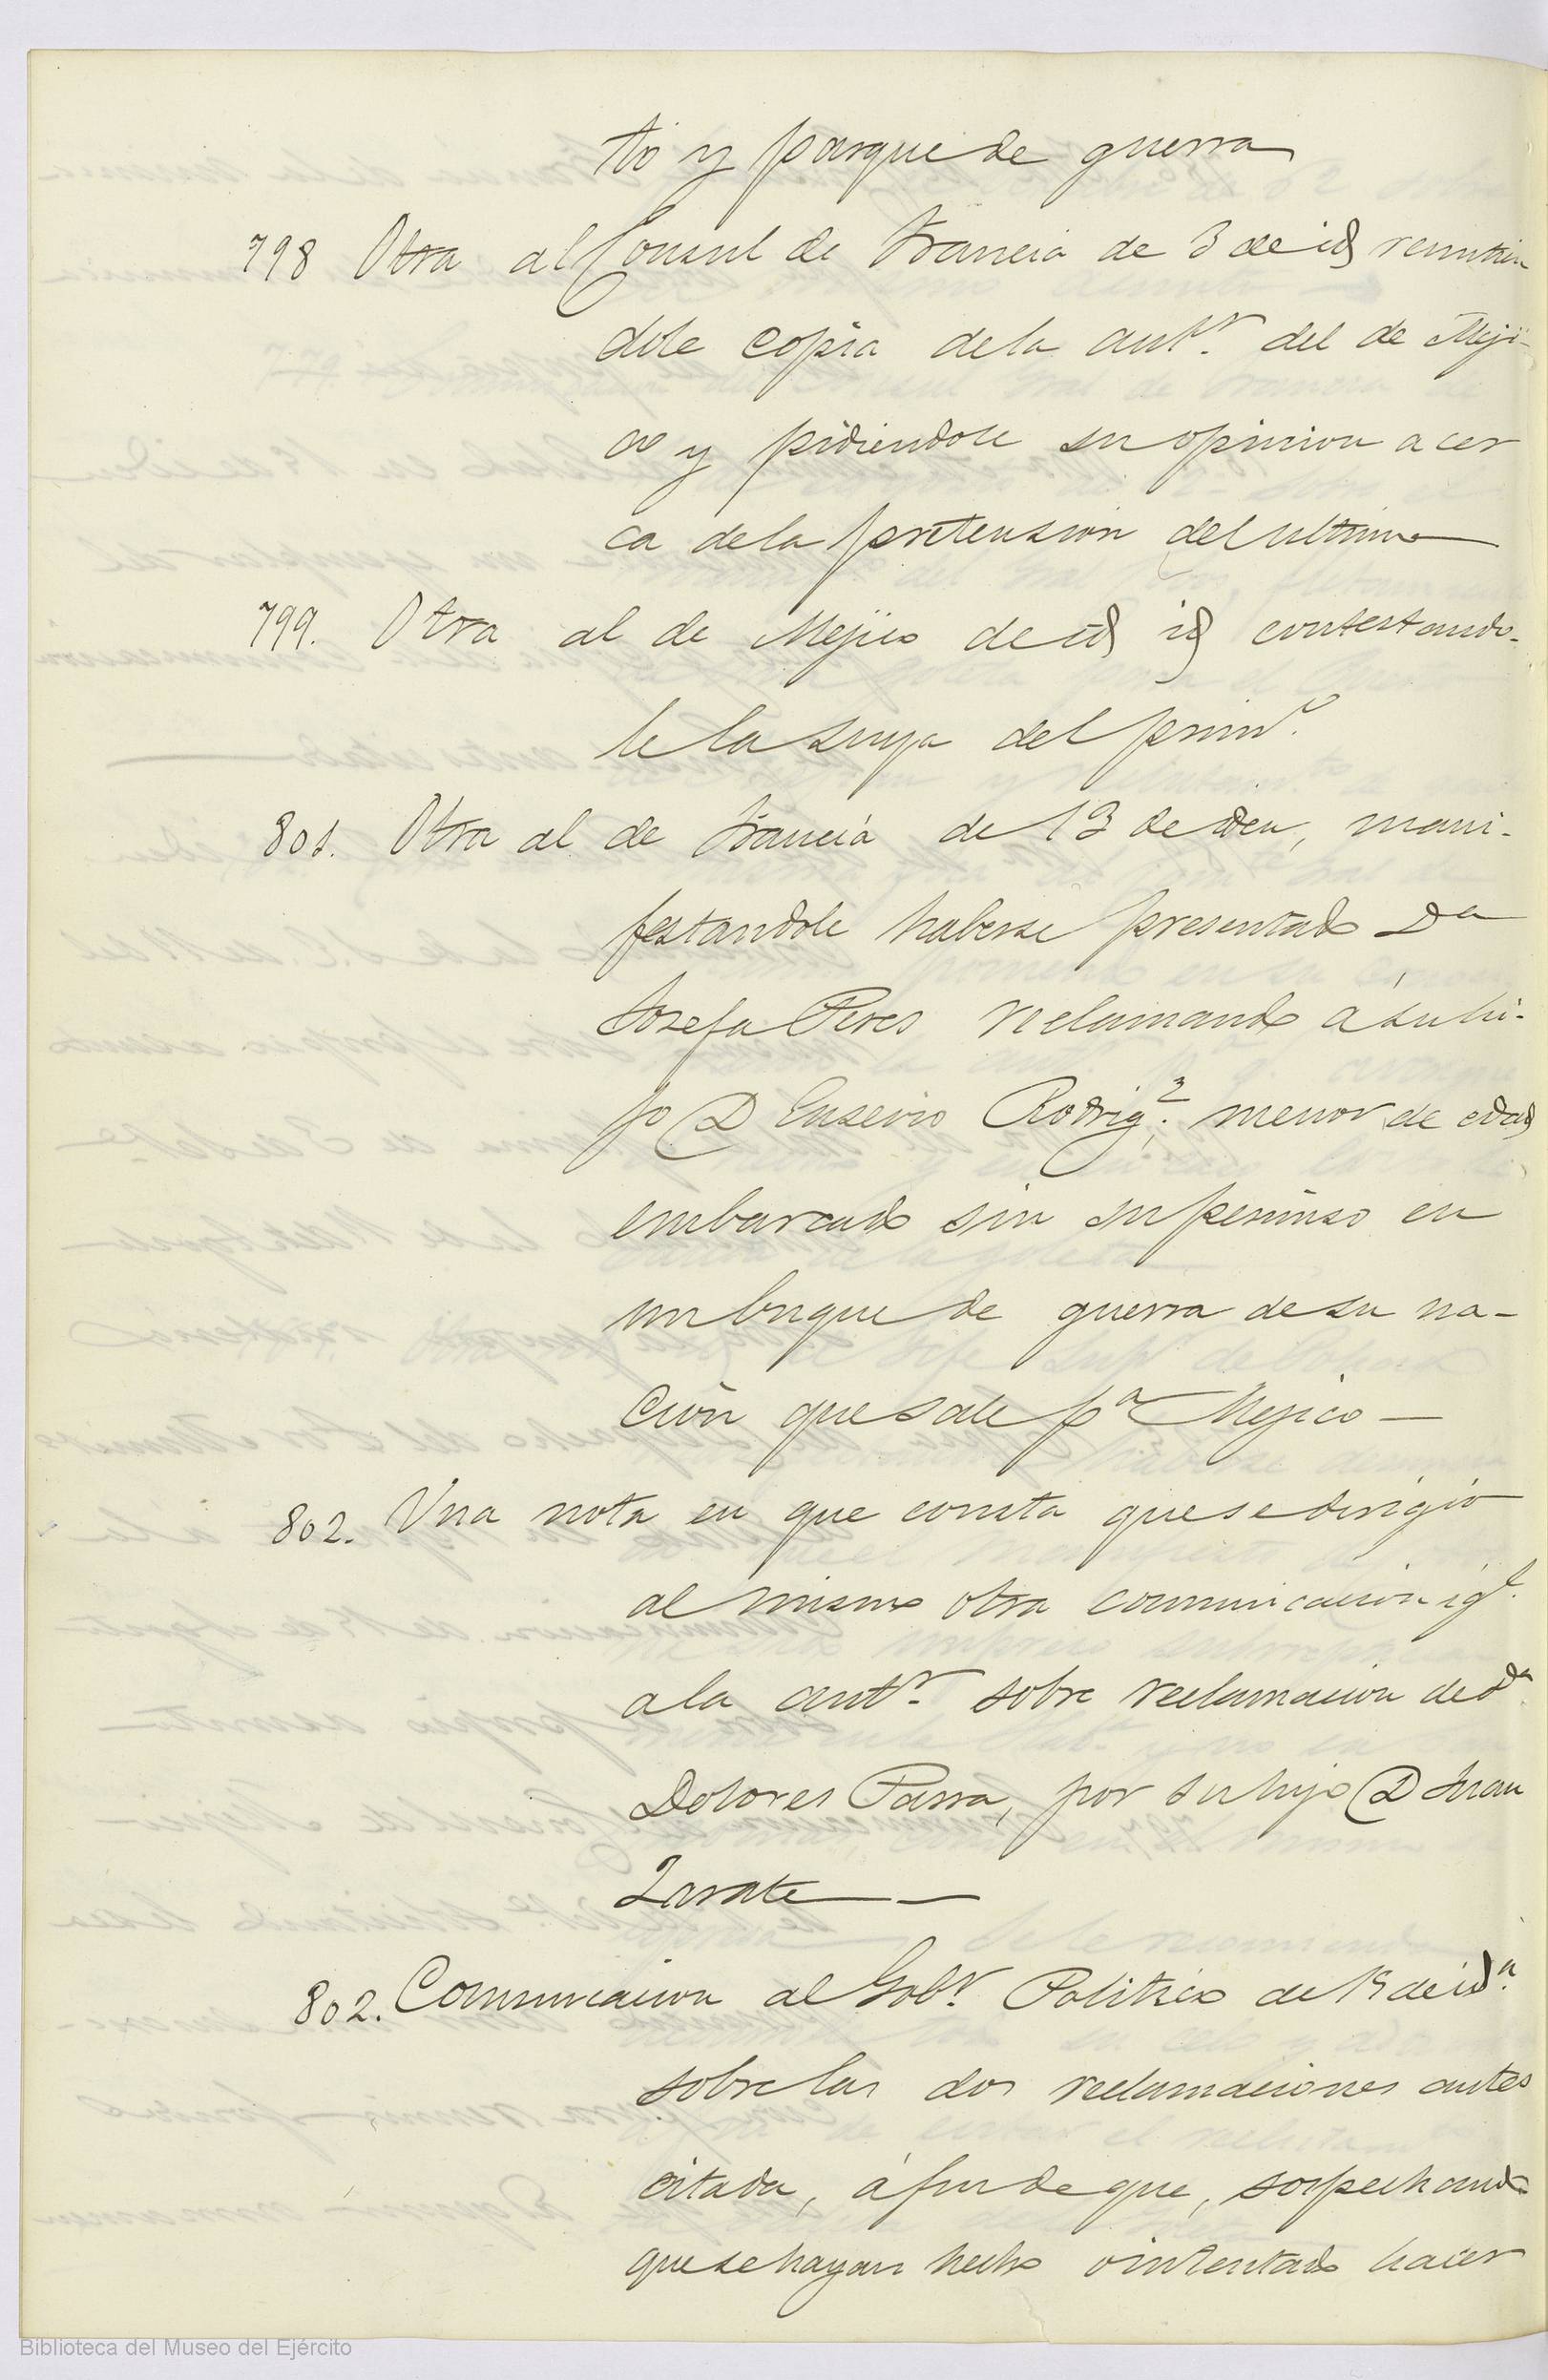 to y parque de guerra
798 Otra al Consul de Francia de 3 de id remitien
dole copia de la antr. del de Meji-
co y pidiendole su opinion acer
ca de la pretension del ultimo
799. Otra al de Mejico de id id contestando-
le la suya del prim.o
801. Otra al de Francia de 13 de iden, mani-
festandole haberse presentado Da
Josefa Peres reclamando á su hi-
jo D Eusevio Rodrig.z menor de edad
embarcado sin su permiso en
un buque de guerra de su na-
cion que sale pa Mejico —
802. Una nota en que consta que se dirigio
al mismo otra comunicacion igl.
a la antr. sobre reclamacion de da
Dolores Parra, por su hijo D Juan
Zarate —
802. Comunicacion al Gobr. Politico de 15 de idn.
sobre las dos reclamaciones antes
citada, á fin de que, sospechando
que se hayan hecho o intentado hacer
Biblioteca del Museo del Ejército